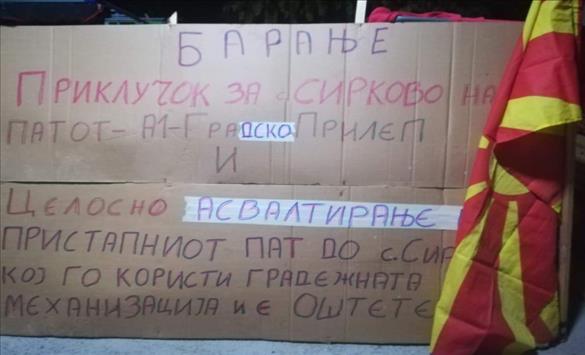 БАРАЊЕ
ПРИКЛУЧОК ЗА с СИРКОВО НА
ПАТОТ- А1-ГРАДСКО ПРИЛЕП
И
ЦЕЛОСНО АСВАЛТИРАЊЕ
ПРИСТАПНИОТ ПАТ ДО с.СИР
КОЈ ГО КОРИСТИ ГРАДЕЖНАТА
МЕХАНИЗАЦИЈА И Е ОШТЕТЕ